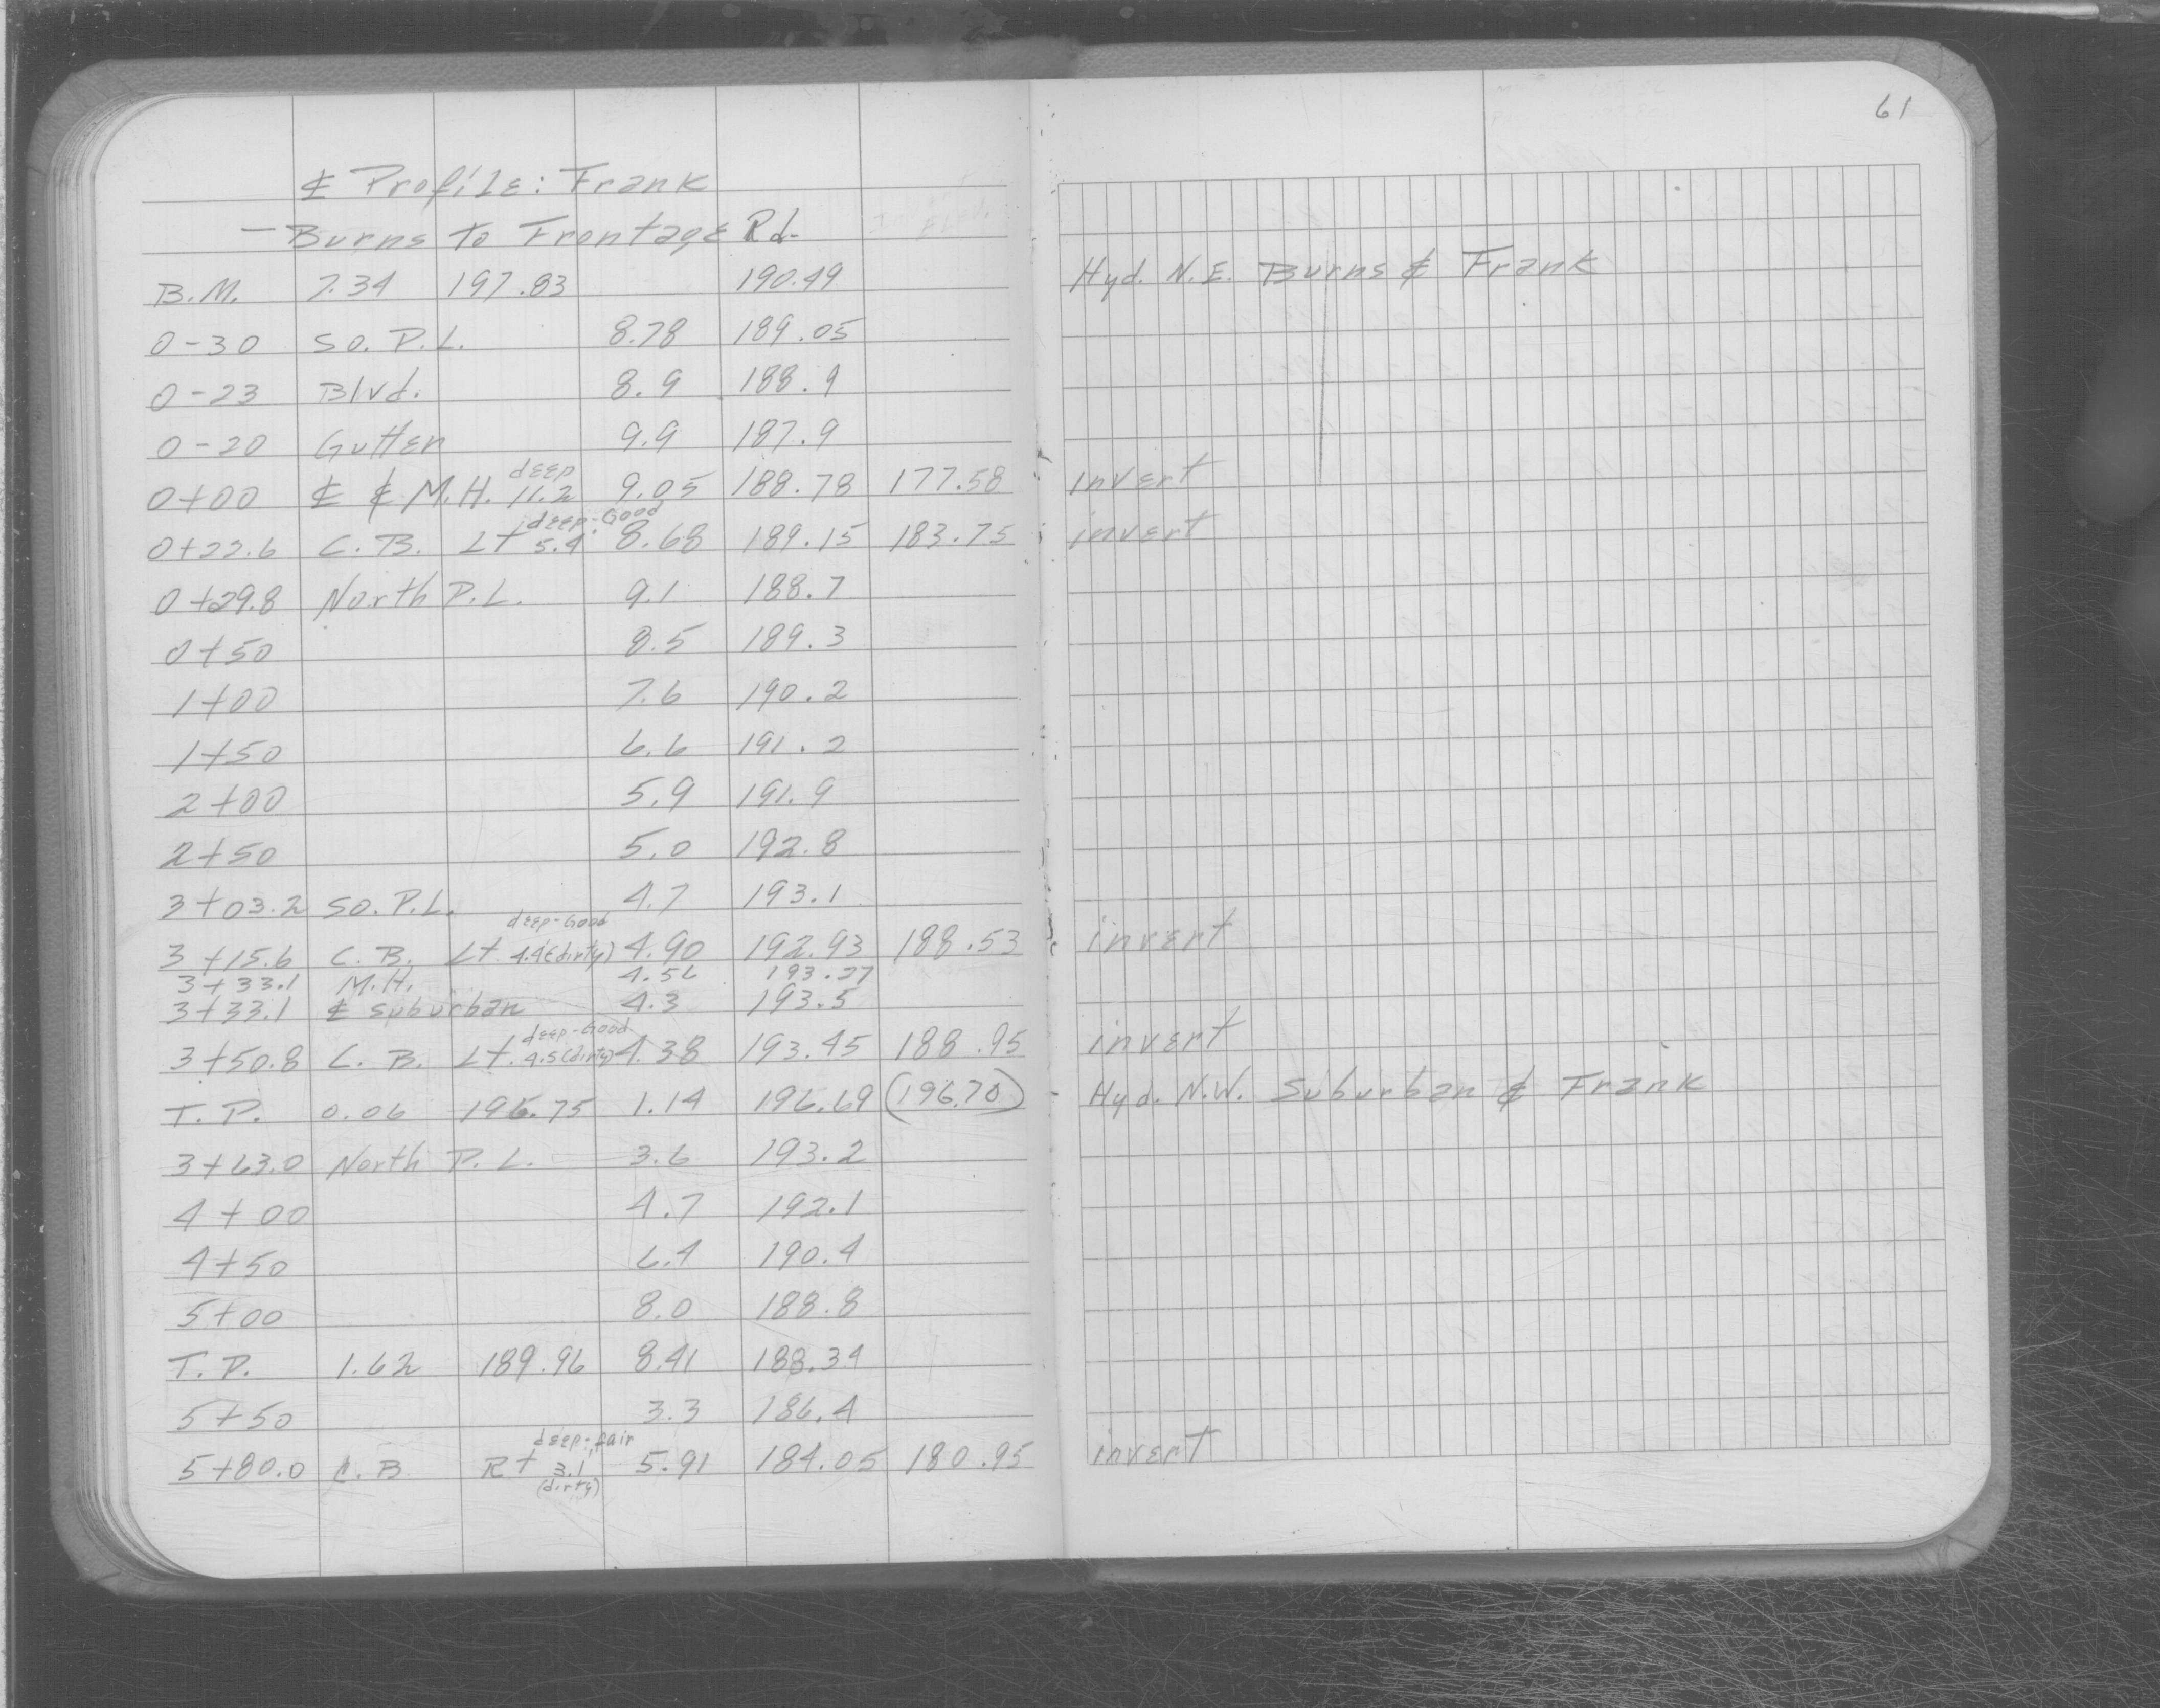 61
℄ Profile: Frank
— Burns to Frontage Rd.
B.M. 7.34 197.83 190.49 Hyd. N.E. Burns & Frank
0-30 So. P.L. 8.78 189.05
0-23 Blvd. 8.9 188.9
0-20 Gutter 9.9 187.9
0+00 ℄ & M.H. 11.2 deep 9.05 188.78 177.58 invert
0+22.6 C.B. Lt 5.4 deep-Good 8.68 189.15 183.75 invert
0+29.8 North P.L. 9.1 188.7
0+50 8.5 189.3
1+00 7.6 190.2
1+50 6.6 191.2
2+00 5.9 191.9
2+50 5.0 192.8
3+03.2 So. P.L. 4.7 193.1
3+15.6 C.B. Lt. 4.4 deep-Good (dirty) 4.90 192.93 188.53 invert
3+33.1 M.H. 4.56 193.27
3+33.1 ℄ Suburban 4.3 193.5
3+50.8 C.B. Lt. 4.5 deep-Good (dirty) 4.38 193.45 188.95 invert
T.P. 0.06 196.75 1.14 196.69 (196.70) Hyd. N.W. Suburban & Frank
3+63.0 North P.L. 3.6 193.2
4+00 4.7 192.1
4+50 6.4 190.4
5+00 8.0 188.8
T.P. 1.62 189.96 8.41 188.34
5+50 3.3 186.4
5+80.0 C.B Rt 3.1 deep-fair (dirty) 5.91 184.05 180.95 invert